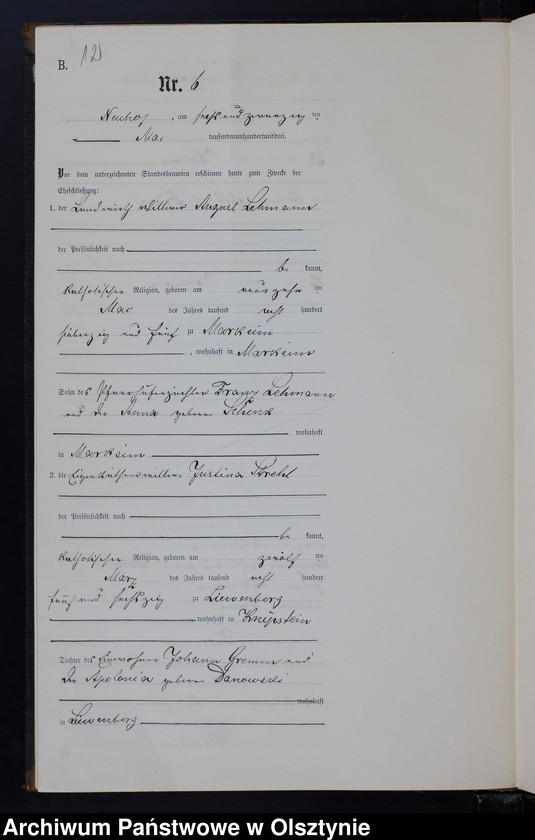 B. 12
Nr. 6
Neuhof, am sechsundzwanzig ten
Mai tausendneunhundertunddrei.
Vor dem unterzeichneten Standesbeamten erschienen heute zum Zwecke der
Eheschließung:
1. der Landwirth Wittwer August Lehmann
der Persönlichkeit nach
be kannt,
katholischer Religion, geboren am neunzehn ten
Mai des Jahres tausend acht hundert
siebenzig und fünf zu Markeim
, wohnhaft in Markeim
Sohn des Franz Lehmann
und der Anna geborene Schenk
wohnhaft
in Markeim
2. die Justina
der Persönlichkeit nach
be kannt,
katholischer Religion, geboren am zwölf ten
März des Jahres tausend acht hundert
fünf und sechszig zu Liewenberg
, wohnhaft in Knipstein
Tochter des Einwohner Johann Gremm und
der Apolonia geborene Danowski
wohnhaft
in Liewenberg
Archiwum Państwowe w Olsztynie